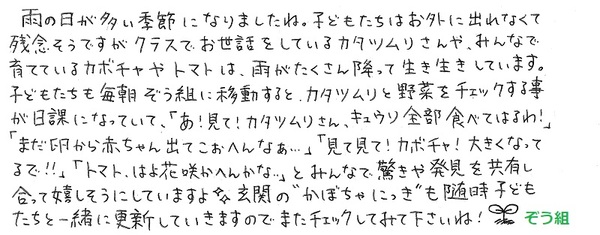 雨の日が多い季節になりましたね。子どもたちはお外に出れなくて
残念そうですがクラスでお世話をしているカタツムリさんや、みんなで
育てているカボチャやトマトは、雨がたくさん降って生き生きしています。
子どもたちも毎朝ぞう組に移動すると、カタツムリと野菜をチェックする事
が日課になっていて、「あ!見て!カタツムリさん、キュウリ全部食べてはるわ!」
「まだ卵から赤ちゃん出てこおへんなぁ…」「見て見て!カボチャ!大きくなって
るで!!」「トマト、はよ花咲かへんかな…」とみんなで驚きや発見を共有し
合って嬉しそうにしていますよ 玄関の"かぼちゃにっき"も随時子ども
たちと一緒に更新していきますのでまたチェックしてみて下さいね! ぞう組